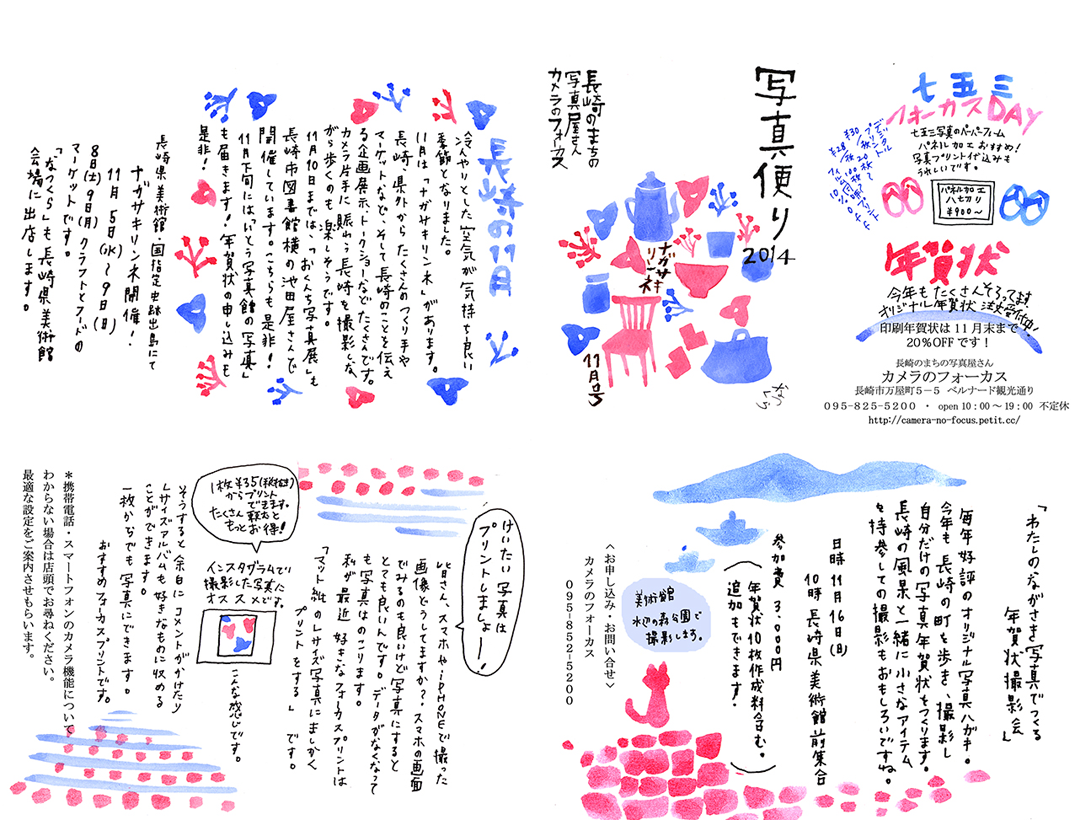 写真便り
2014
長崎のまちの
写真屋さん
カメラのフォーカス
ナガサキ
リンネ
11月号
七五三
フォーカスDAY
七五三写真のペーパーフレーム
パネル加工おすすめ!
写真プリント代込みも
うれしいです。
パネル加工
八切り
¥900〜
年賀状
今年もたくさんそろってます
オリジナル年賀状注文受付中!
印刷年賀状は11月末まで
20%OFFです！
長崎のまちの写真屋さん
カメラのフォーカス
長崎市万屋町５－５ ベルナード観光通り
095-825-5200 ・ open 10：00～19：00 不定休
http://camera-no-focus.petit.cc/
長崎の11月
冷んやりとした空気が気持ち良い
季節となりました。
11月は「ナガサキリンネ」があります。
長崎、県外からたくさんのつくり手や
マーケットなど、そして長崎のことを伝え
る企画展示、トークショーなどたくさんです。
カメラ片手に賑わう長崎を撮影しな
がら歩くのも楽しそうです。
11月10日までは、「おくんち写真展」も
長崎市図書館横の池田屋さんで
開催しています。こちらも是非!
11月下旬には「いとう写真館の写真」
も届きます!年賀状の申し込みも
是非!
長崎県美術館・国指定史跡出島にて
ナガサキリンネ開催!
11月5日(水)〜9日(日)
8日(土)9日(月)クラフトとフードの
マーケットです。
「なつくら」も長崎県美術館
会場に出店します。
「わたしのながさき写真でつくる
年賀状撮影会」
毎年好評のオリジナル写真ハガキ。
今年も長崎の町を歩き、撮影し
自分だけの写真年賀状をつくります。
長崎の風景と一緒に小さなアイテム
を持参しての撮影もおもしろいですね。
日時11月16日(日)
10時 長崎県美術館前集合
参加費 3,000円
(年賀状10枚作成料含む。
追加もできます。)
美術館
水辺の森公園で
撮影します。
＜お申し込み・お問い合せ＞
カメラのフォーカス
095-852-5200
けいたい写真は
プリントしましょー!
皆さん、スマホやiPHONEで撮った
画像どうしてますか?スマホの画面
でみるのも良いけど写真にすると
とても良いんです。データがなくなって
も写真はのこります。
私が最近好きなフォーカスプリントは
「マット紙のLサイズ写真にましかく
プリントをする」です。
1枚¥35(税抜き)
からプリント
できます。
たくさん頼むと
もっとお得!
インスタグラムで
撮影した写真に
オススメです。
こんな感じです。
そうすると余白にコメントがかけたり
Lサイズアルバムも好きなものに収める
ことができます。
一枚からでも写真にできます。
おすすめフォーカスプリントです。
＊携帯電話・スマートフォンのカメラ機能について
わからない場合は店頭でお尋ねください。
最適な設定をご案内させてもらいます。